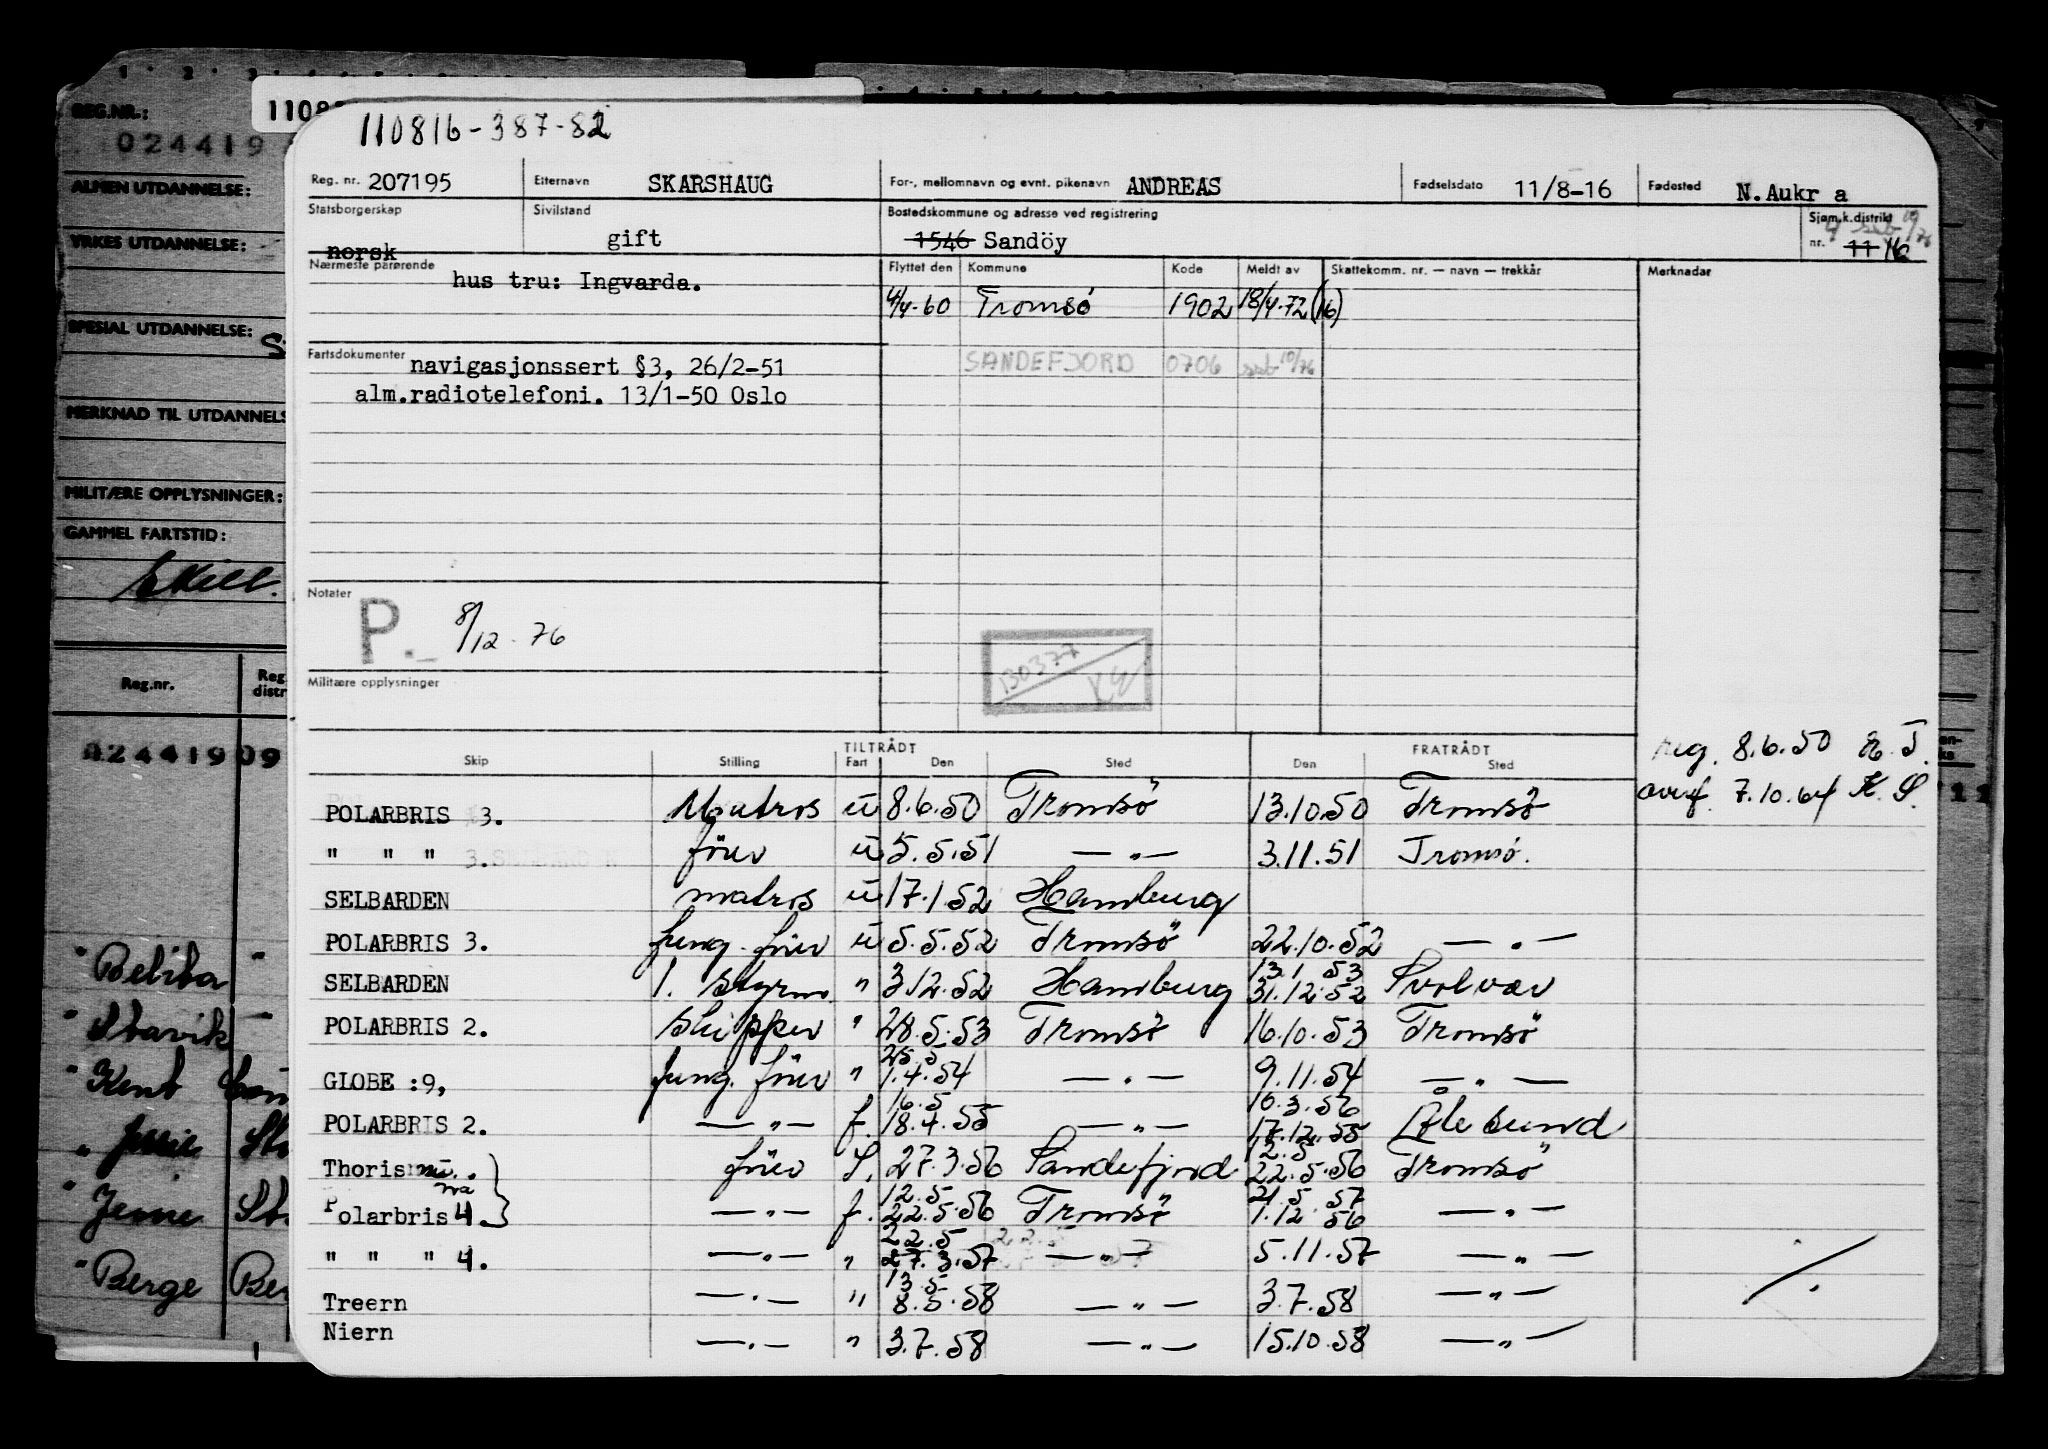 110816-387-82
Reg. nr. 207195 Etternavn SKARSHAUG For-, mellomnavn og evnt. pikenavn ANDREAS Fødselsdato 11/8-16 Fødested N.Aukr a
Statsborgerskap norsk Sivilstand gift Bostedskommune og adresse ved registrering 1546 Sandöy Sjøm.k.distrikt nr. 11 16
Nærmeste pårørende hus tru: Ingvarda.
Flyttet den Kommune Kode Meldt av Skattekomm. nr. — navn — trekkår Merknader
4/4-60 Tromsö 1902 18/4-72 (16)
SANDEFJORD 0706 ssb 10/76
Fartsdokumenter navigasjonssert §3, 26/2-51
alm.radiotelefoni. 13/1-50 Oslo
Notater P. 8/12-76
130377
Militære opplysninger
reg. 8.6.50
overf. 7.10.64 K.S.
TILTRÅDT FRATRÅDT
Skip Stilling Fart Den Sted Den Sted
POLARBRIS 3. Matros u 8.6.50 Tromsö 13.10.50 Tromsö
" " " 3. förer u 5.5.51 — " — 3.11.51 Tromsö.
SELBARDEN matros u 17.1.52 Hamburg
POLARBRIS 3. fung. förer u 5.5.52 Tromsö 22.10.52 — " —
SELBARDEN 1. styrm. " 3.12.52 Hamburg 13.1.53 31.12.52 Svolvær
POLARBRIS 2. skipper " 28.5.53 Tromsö 16.10.53 Tromsö
GLOBE :9, fung. förer " 25.5 1.4.54 — " — 9.11.54 — " —
POLARBRIS 2. — " — f. 16.5 18.4.55 — " — 10.3.56 17.12.55 Ålesund
Thoris förer S. 27.3.56 Sandefjord 12.5 22.5.56 Tromsö
Polarbris 4. — " — f. 12.5 22.5.56 Tromsö 21.5.57 1.12.56 — " —
" " " 4. — " — " 22.5 27.3.57 — " — 5.11.57 — " —
Treern — " — " 13.5 8.5.58 — " — 3.7.58 — " —
Niern — " — " 3.7.58 — " — 15.10.58 — " —
REG.NR.: 1108
024419
ALMEN UTDANNELSE:
YRKES UTDANNELSE:
SPESIAL UTDANNELSE:
MERKNAD TIL UTDANNELS
MILITÆRE OPPLYSNINGER:
GAMMEL FARTSTID:
Reg.nr. Reg. distr
024419 09
" Belita "
" Stavik "
" Kent
" Jessie
" Jenne
" Berge Ber